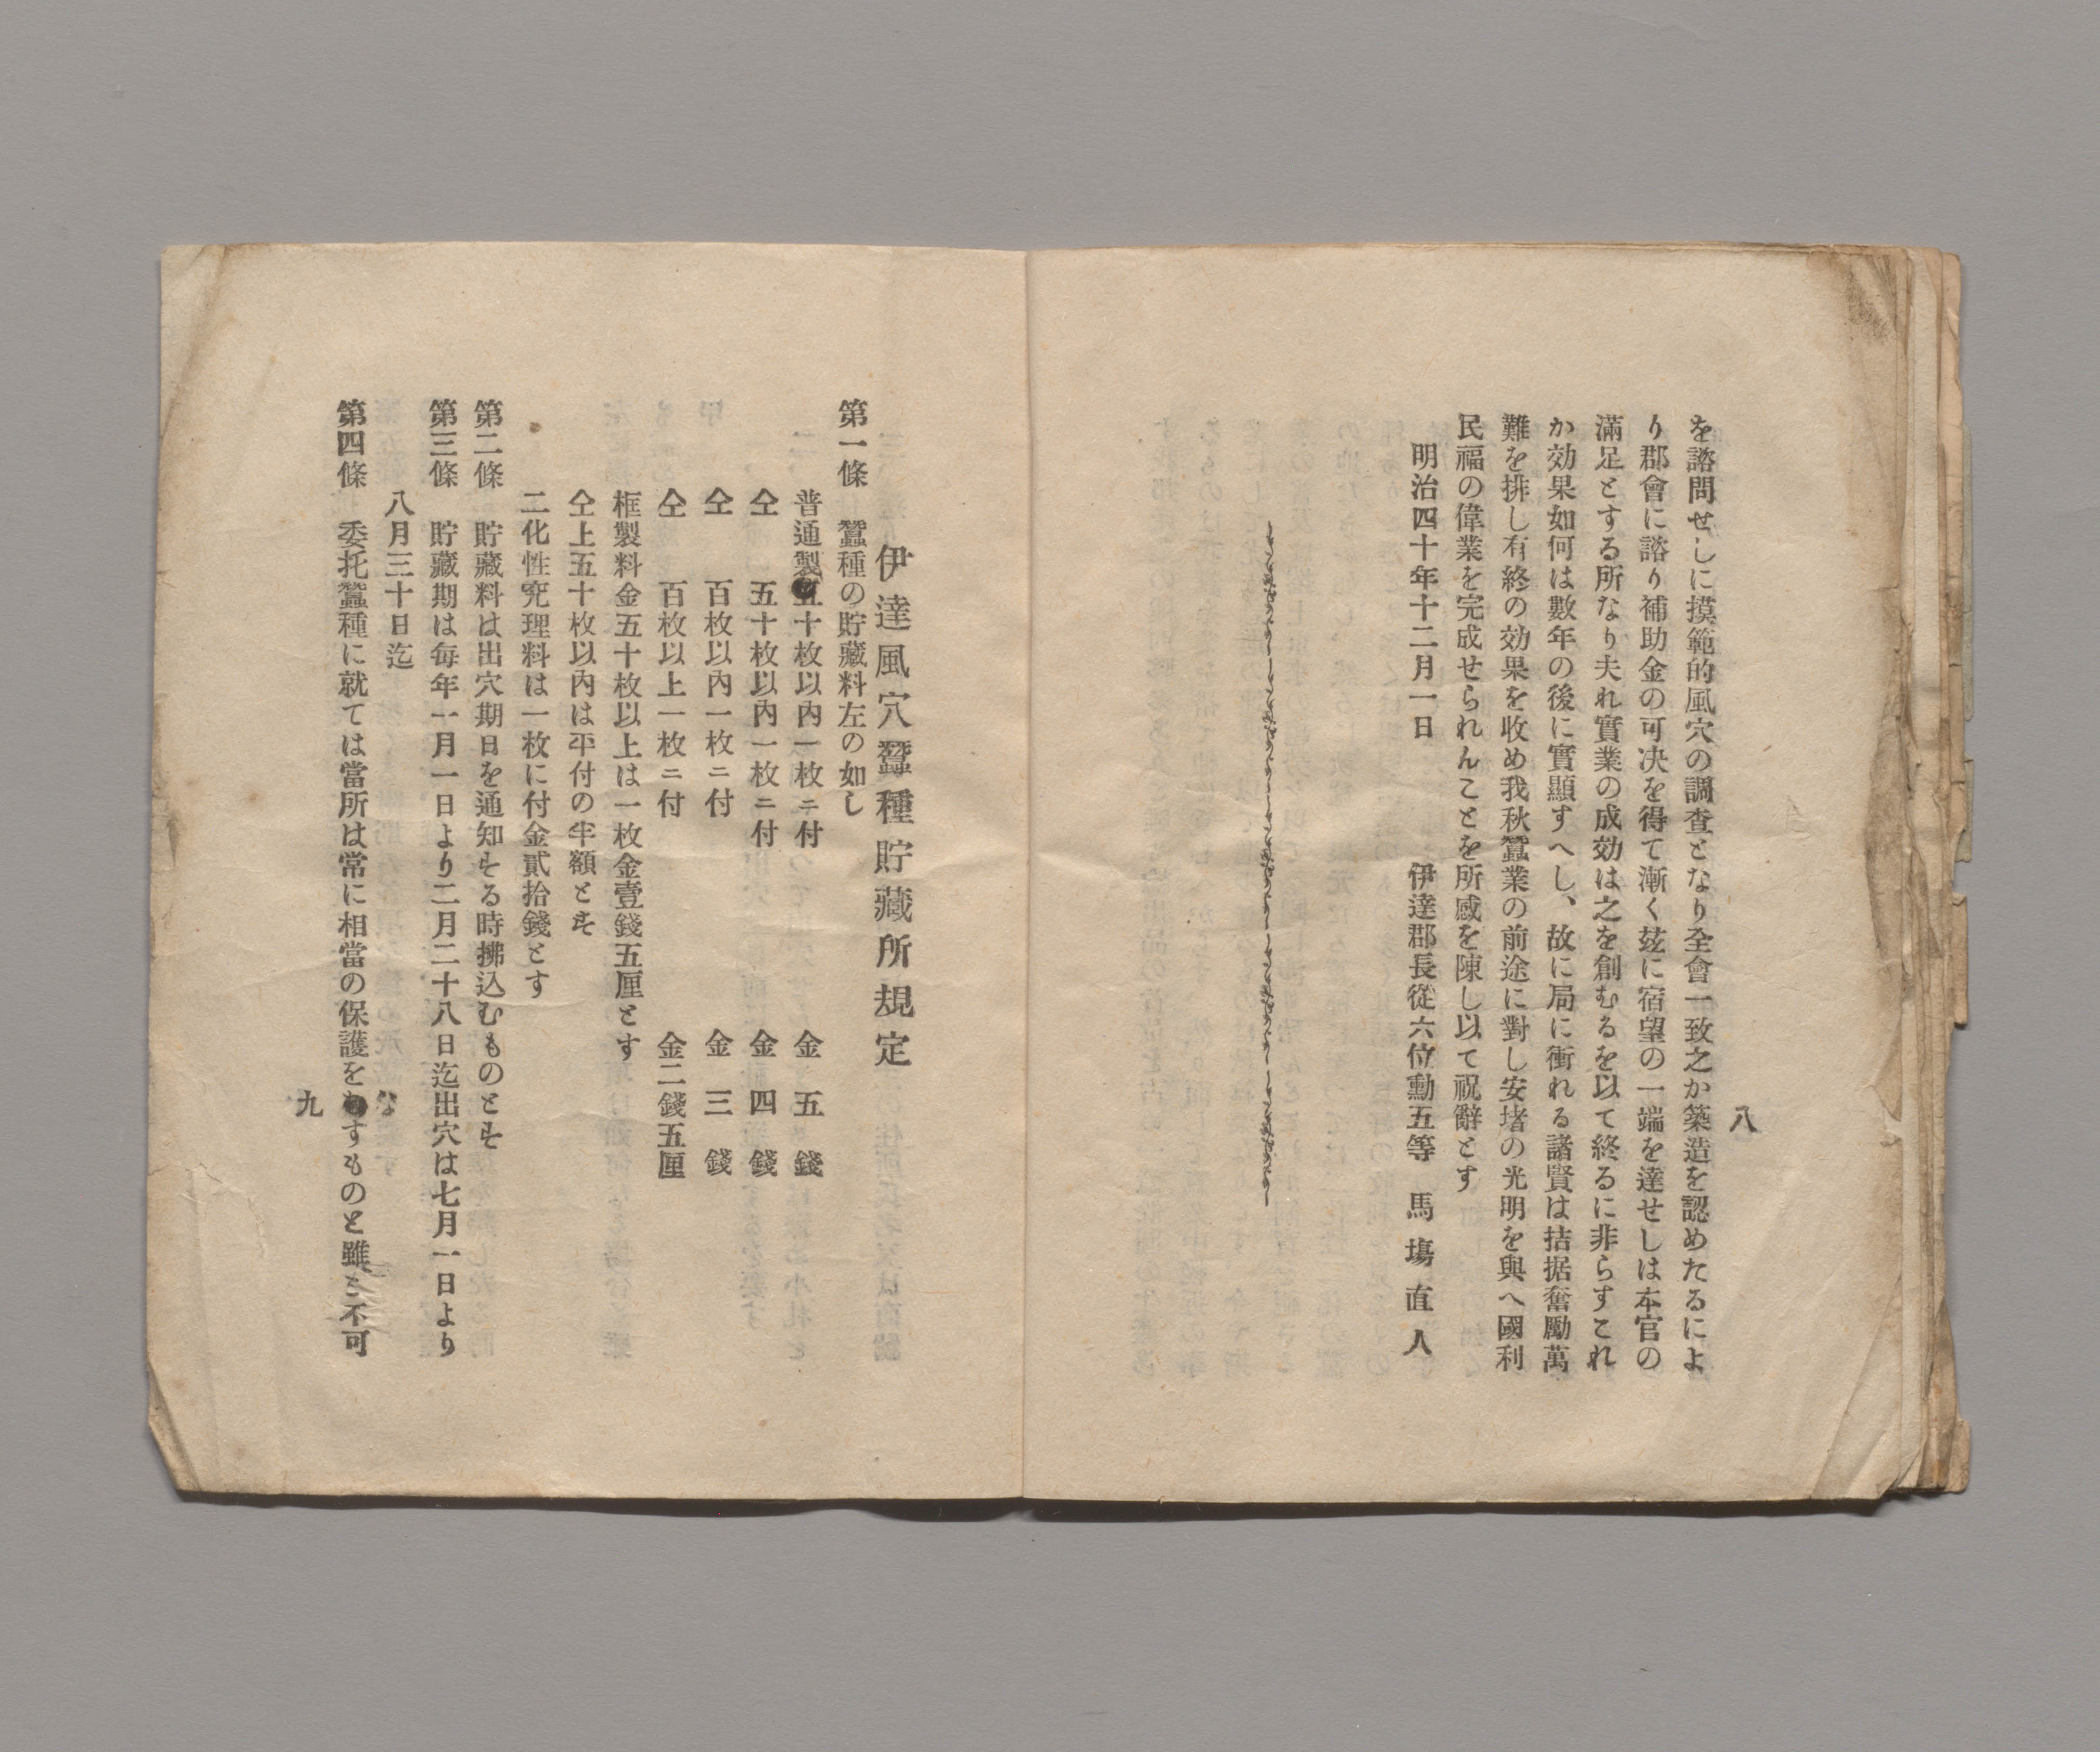 八
を諮問せしに摸範的風穴の調査となり全會一致之か築造を認めたるによ
り郡會に諮り補助金の可决を得て漸く玆に宿望の一端を達せしは本官の
滿足とする所なり夫れ實業の成効は之を創むるを以て終るに非らすこれ
か効果如何は數年の後に實顯すへし、故に局に衝れる諸賢は拮据奮勵萬
難を排し有終の効果を收め我秋蠶業の前途に對し安堵の光明を與へ國利
民福の偉業を完成せられんことを所感を陳し以て祝辭とす
明治四十年十二月一日
伊達郡長從六位勳五等　馬塲直人
伊達風穴蠶種貯藏所規定
第一條　蠶種の貯藏料左の如し
普通製五十枚以內一枚ニ付　金五錢
仝　五十枚以內一枚ニ付　金四錢
仝　百枚以內一枚ニ付　金三錢
仝　百枚以上一枚ニ付　金二錢五厘
框製料金五十枚以上は一枚金壹錢五厘とす
仝上五十枚以內は平付の半額とす
二化性究理料は一枚に付金貳拾錢とす
第二條　貯藏料は出穴期日を通知する時拂込むものとす
第三條　貯藏期は每年一月一日より二月二十八日迄出穴は七月一日より
八月三十日迄
第四條　委托蠶種に就ては當所は常に相當の保護をなすものと雖も不可
九